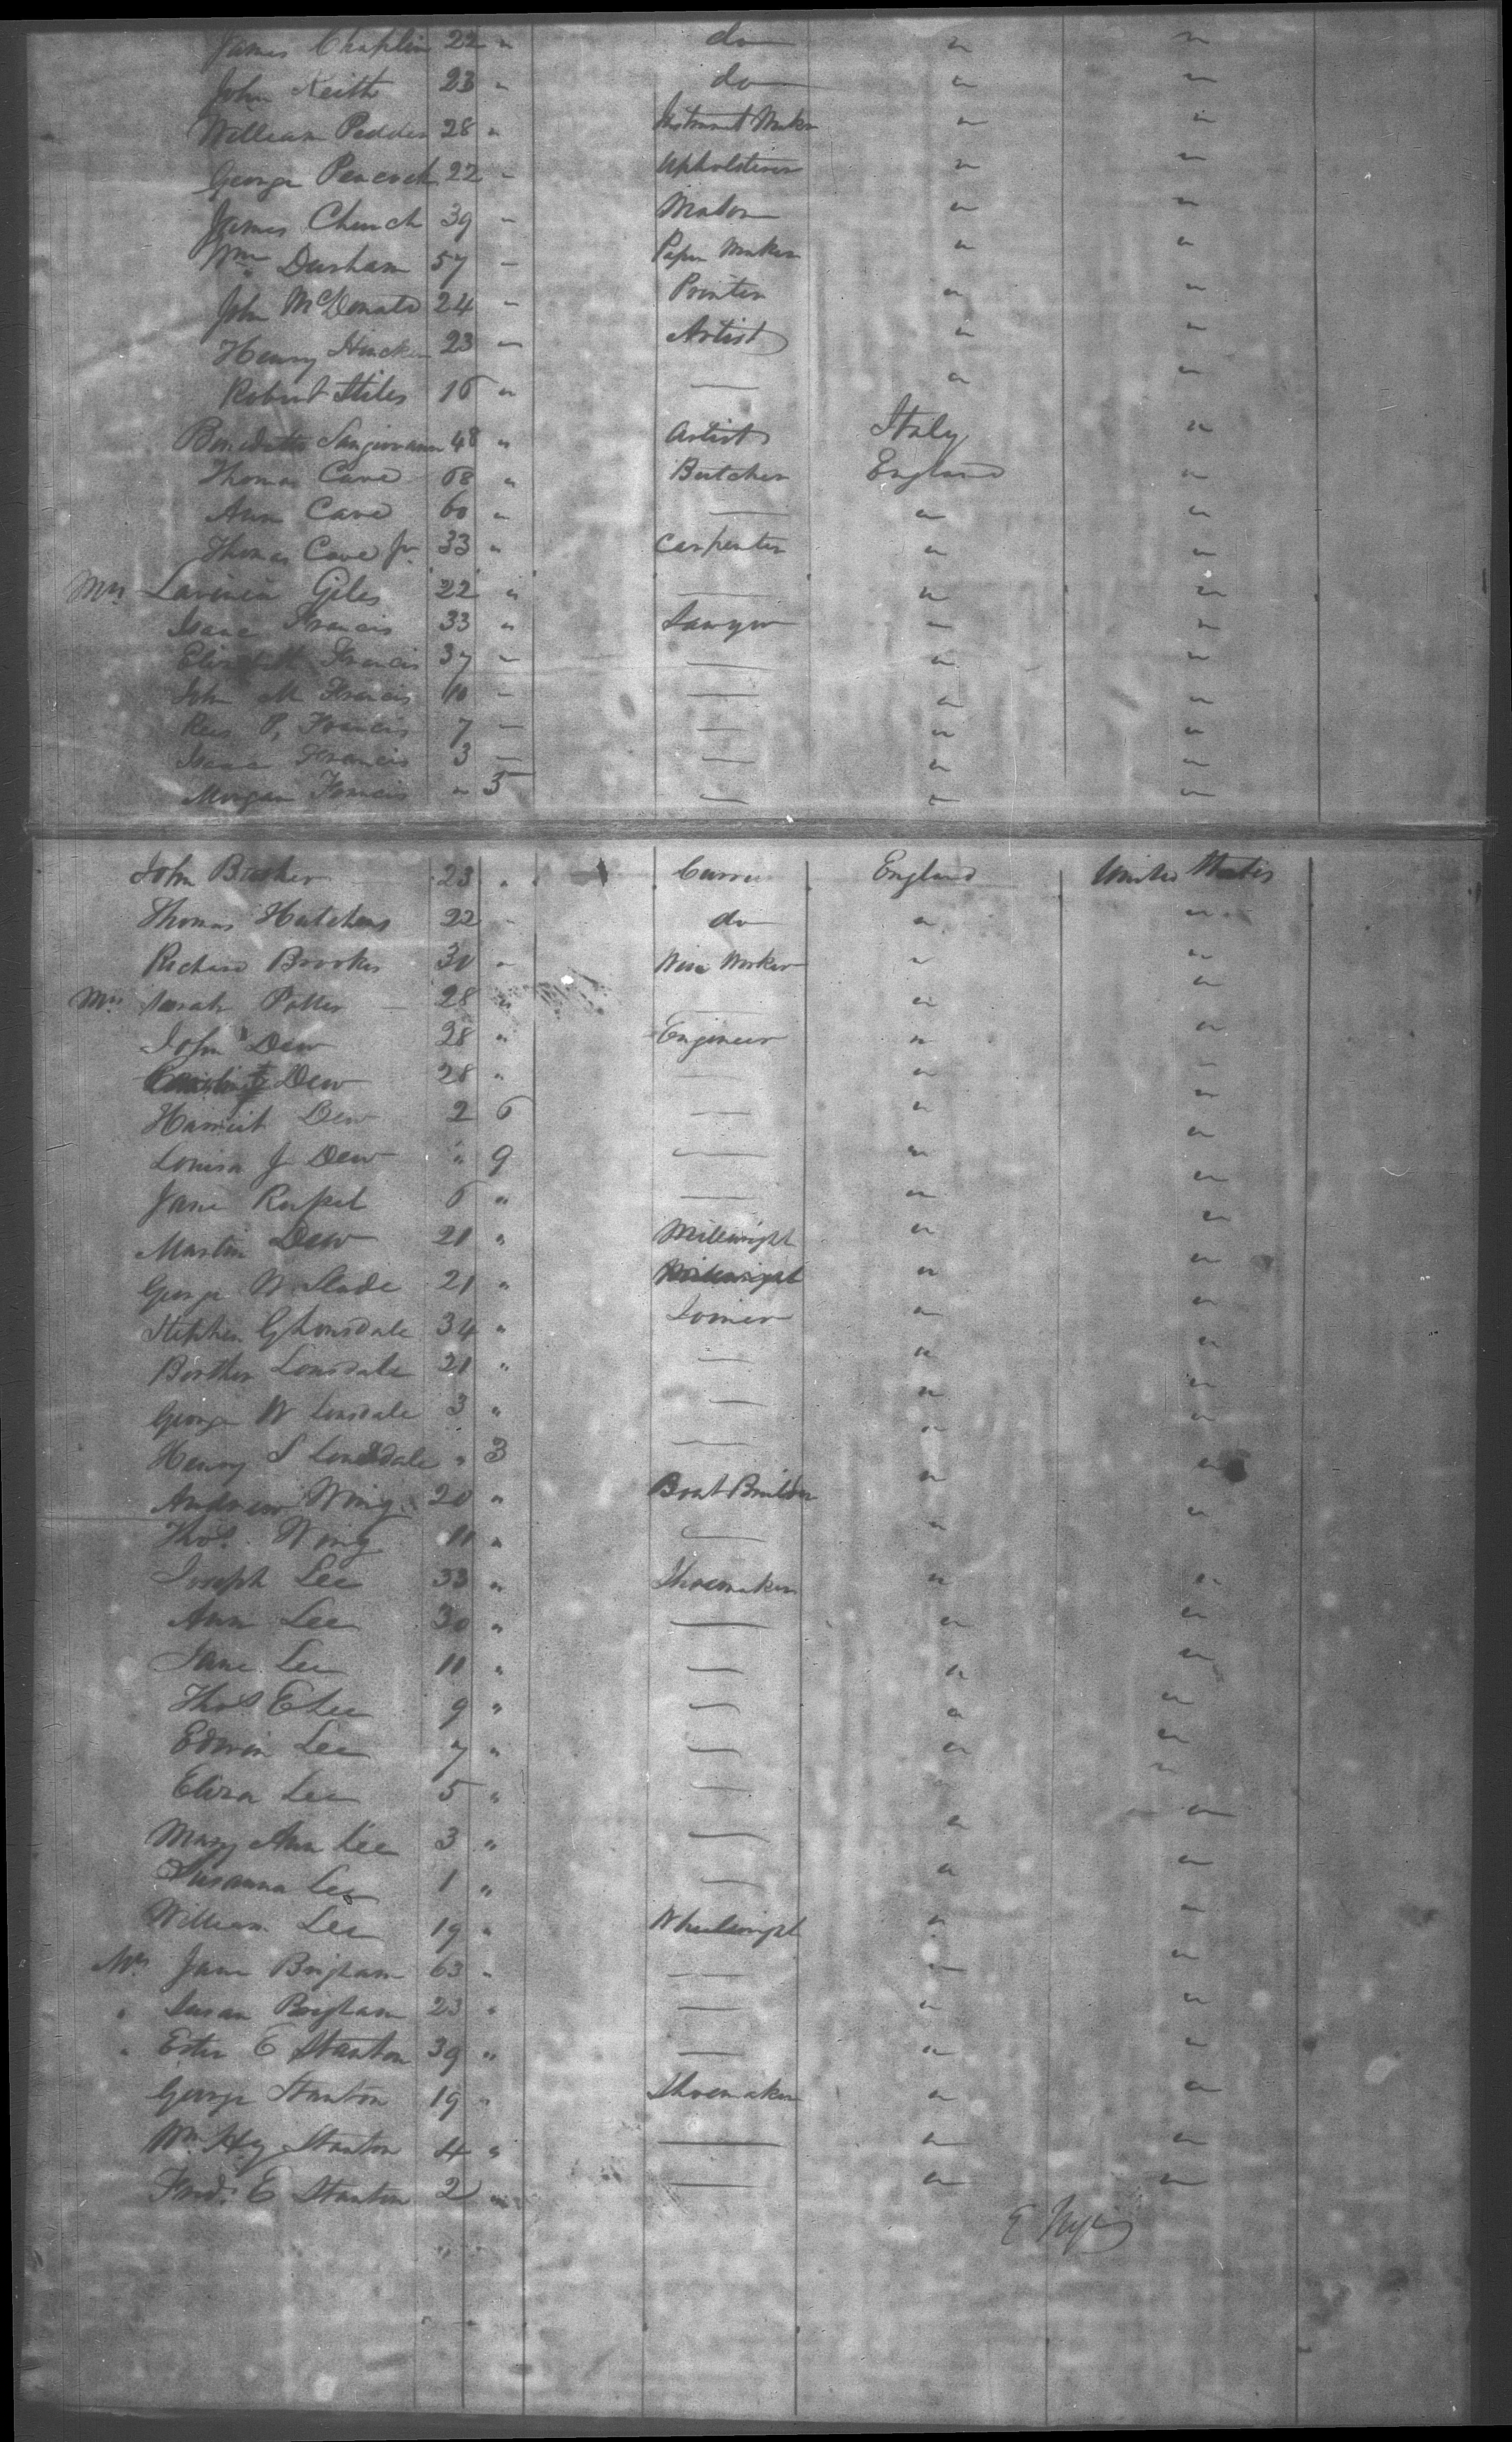 James Chaplin 22 " do " "
John Keith 23 " do " "
William Pedder 28 " Instrumt Maker " "
George Peacock 22 " Upholsterer " "
James Church 39 " " "
Wm Durham 57 " Paper Maker " "
John McDonald 24 " Printer " "
Henry 23 " Artist " "
Robert Stiles 16 " — " "
Benedetto Sangiovanni 48 " Artist Italy "
Thomas Cave 68 " Butcher England "
Ann Cave 60 " — " "
Thomas Cave Jr. 33 " Carpenter " "
Mrs Lavinia Giles 22 " — " "
Isaac Francis 33 " Sawyer " "
Elizabeth Francis 37 " — " "
John M Francis 10 " — " "
Rees P, Francis 7 " — " "
Isaac Francis 3 " — " "
Morgan Francis " 5 — " "
John 23 " England United States
Thomas Hutchens 22 " do " "
Richard Brookes 30 " Wire Worker " "
Mrs Sarah Potter 28 " — " "
John Dew 28 " Engineer " "
Dew 28 " — " "
Harriet Dew 2 6 — " "
Louisa J Dew " 9 — " "
Jane 6 " — " "
Martin Dew 21 " Millwright " "
George W Slade 21 " " "
Stephen G Lonsdale 34 " Joiner " "
Lonsdale 21 " — " "
George W Lonsdale 3 " — " "
Henry S Lonsdale " 3 — " "
Andrew Wing 20 " Boat Builder " "
Thos. Wing 11 " — " "
Joseph Lee 33 " Shoemaker " "
Ann Lee 30 " — " "
Jane Lee 11 " — " "
Thos E Lee 9 " — " "
Edwin Lee 7 " — " "
Eliza Lee 5 " — " "
Mary Ann Lee 3 " — " "
Susanna Lee 1 " — " "
William Lee 19 " Wheelwright " "
Mrs Jane Brigham 63 " — " "
" Susan Brigham 23 " — " "
" Ester E Stanton 39 " — " "
George Stanton 19 " Shoemaker " "
Wm Hy Stanton 4 " — " "
Fredk E Stanton 2 " — " "
E Nye